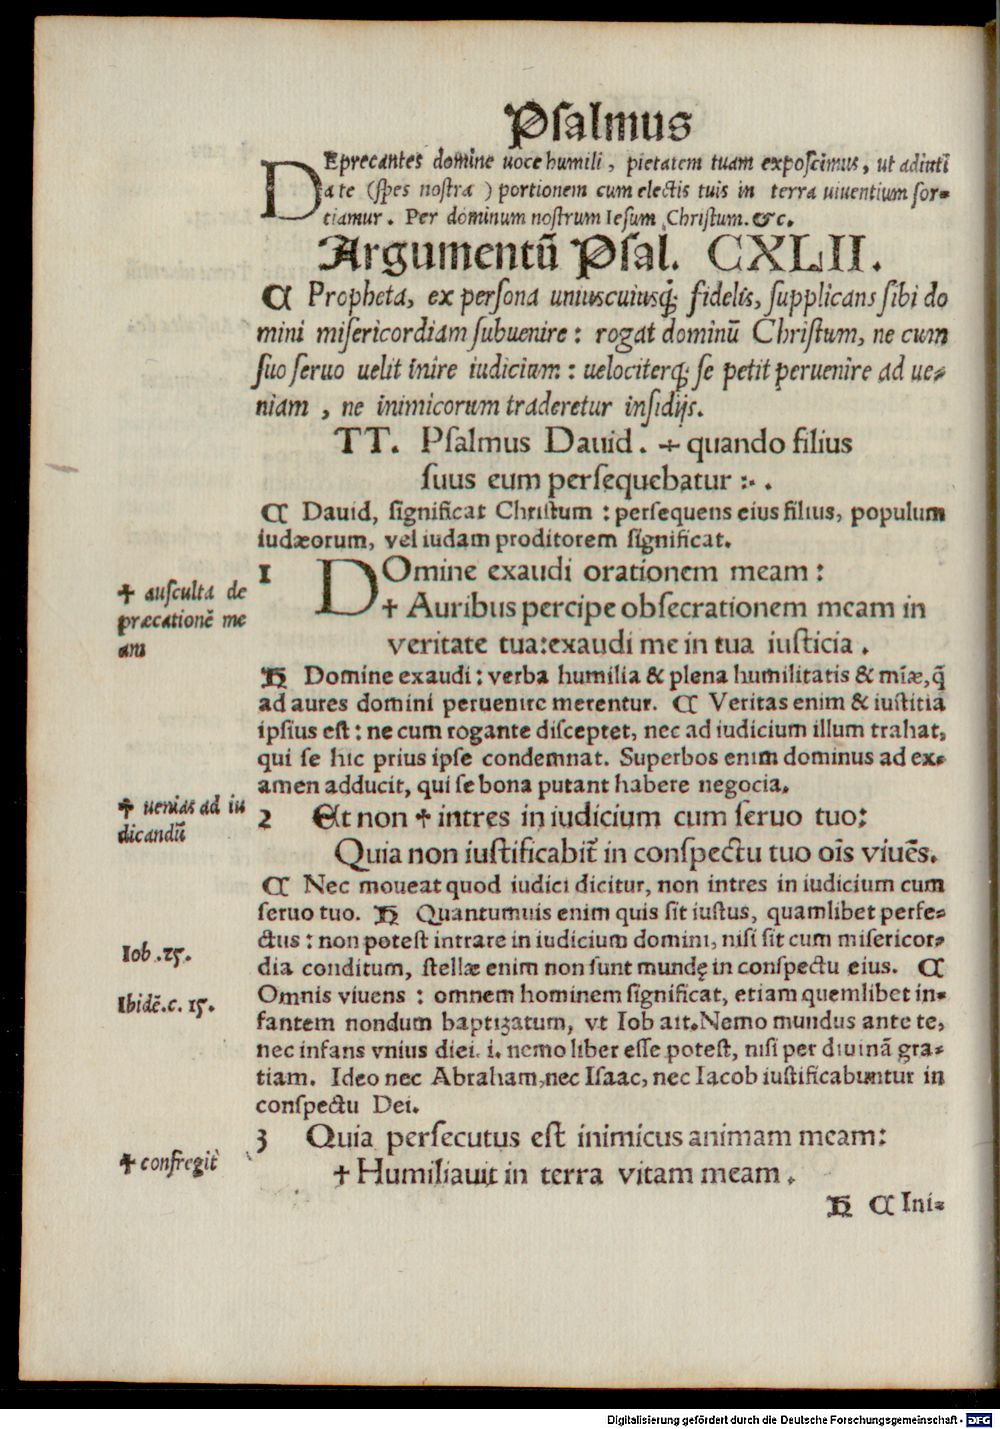 Psalmus
DEprecantes domine uoce humili, pietatem tuam exposcimus, ut adiuti
a te (spes nostra) portionem cum electis tuis in terra uiuentium sor-
tiamur. Per dominum nostrum Iesum Christum. &c.
Argumentū Psal. CXLII.
C Propheta, ex persona uniuscuiusq; fidelis, supplicans sibi do
mini misericordiam subuenire: rogat dominū Christum, ne cum
suo seruo uelit inire iudicium: uelociterq; se petit peruenire ad ue-
niam, ne inimicorum traderetur insidijs.
TT. Psalmus Dauid. ÷ quando filius
suus eum persequebatur :·.
C Dauid, significat Christum: persequens eius filius, populum
iudæorum, vel iudam proditorem significat.
1 DOmine exaudi orationem meam:
✝ Auribus percipe obsecrationem meam in
veritate tua: exaudi me in tua iusticia.
✝ ausculta de
præcationē me
am
H Domine exaudi: verba humilia & plena humilitatis & miæ, q̄
ad aures domini peruenire merentur. C Veritas enim & iustitia
ipsius est: ne cum rogante disceptet, nec ad iudicium illum trahat,
qui se hic prius ipse condemnat. Superbos enim dominus ad ex-
amen adducit, qui se bona putant habere negocia.
2 Et non ✝ intres in iudicium cum seruo tuo:
✝ uenias ad iu
dicandū
Quia non iustificabit̄ in conspectu tuo oīs viuēs.
C Nec moueat quod iudici dicitur, non intres in iudicium cum
seruo tuo. H Quantumuis enim quis sit iustus, quamlibet perfe-
ctus: non potest intrare in iudicium domini, nisi sit cum misericor-
dia conditum, stellæ enim non sunt mundę in conspectu eius. C
Iob .25.
Omnis viuens: omnem hominem significat, etiam quemlibet in-
Ibidē.c. 15.
fantem nondum baptizatum, vt Iob ait. Nemo mundus ante te,
nec infans vnius diei. i. nemo liber esse potest, nisi per diuinā gra-
tiam. Ideo nec Abraham, nec Isaac, nec Iacob iustificabuntur in
conspectu Dei.
3 Quia persecutus est inimicus animam meam:
✝ confregit
✝ Humiliauit in terra vitam meam.
H C Ini-
Digitalisierung gefördert durch die Deutsche Forschungsgemeinschaft - DFG